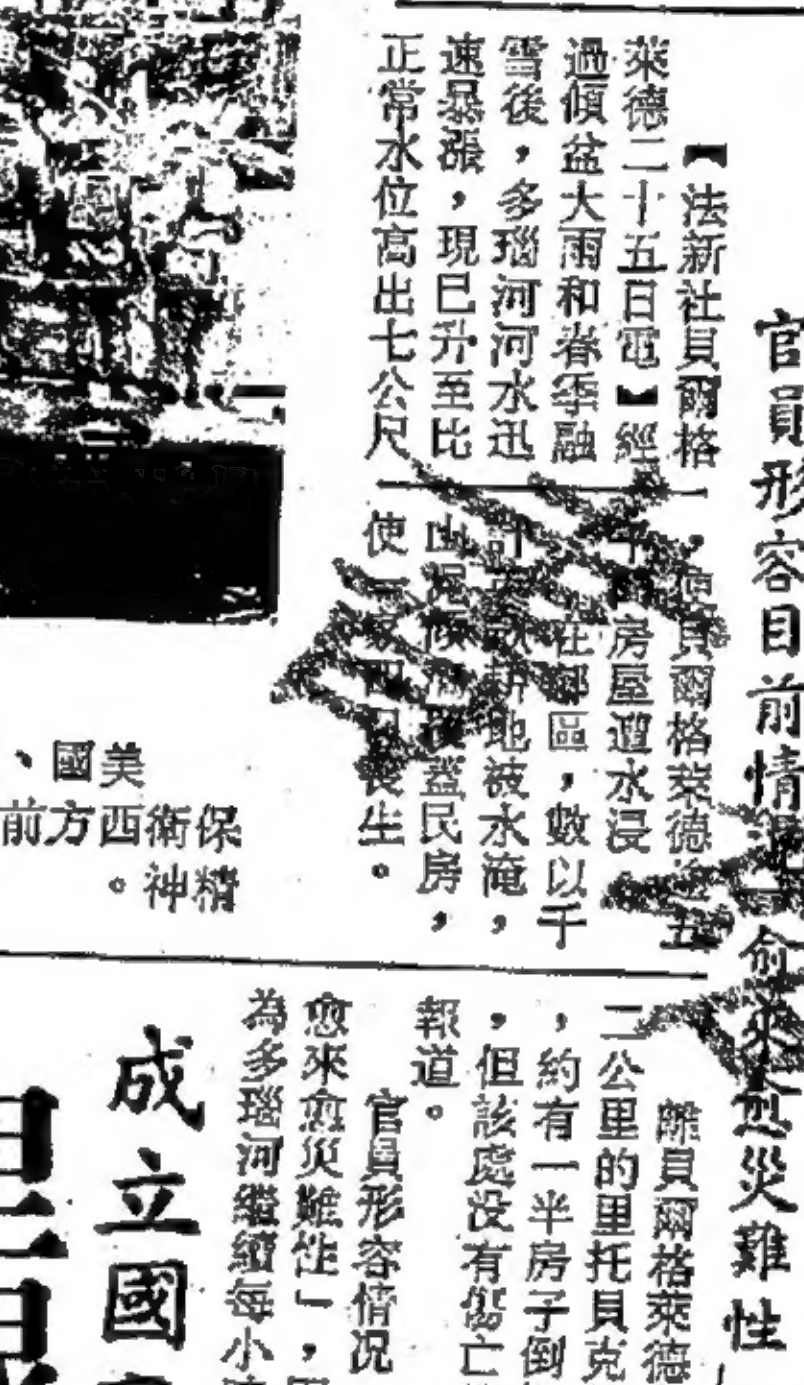 官員形容目前情況愈來愈災難性
【法新社貝爾格
萊德二十五日電】經
過傾盆大雨和春季融
雪後，多瑙河河水迅
速暴漲，現已升至比
正常水位高出七公尺
，使貝爾格萊德
房屋遭水浸
在郊區，數以千
計 耕地被水淹，
山泥傾瀉 蓋民房，
使 喪生。
離貝爾格萊德
二公里的里托貝克
，約有一半房子倒
，但該處沒有傷亡
報道。
官員形容情況
愈來愈災難性」，
為多瑙河繼續每小
成立國
美
國、
西方
前
保衛
精神。